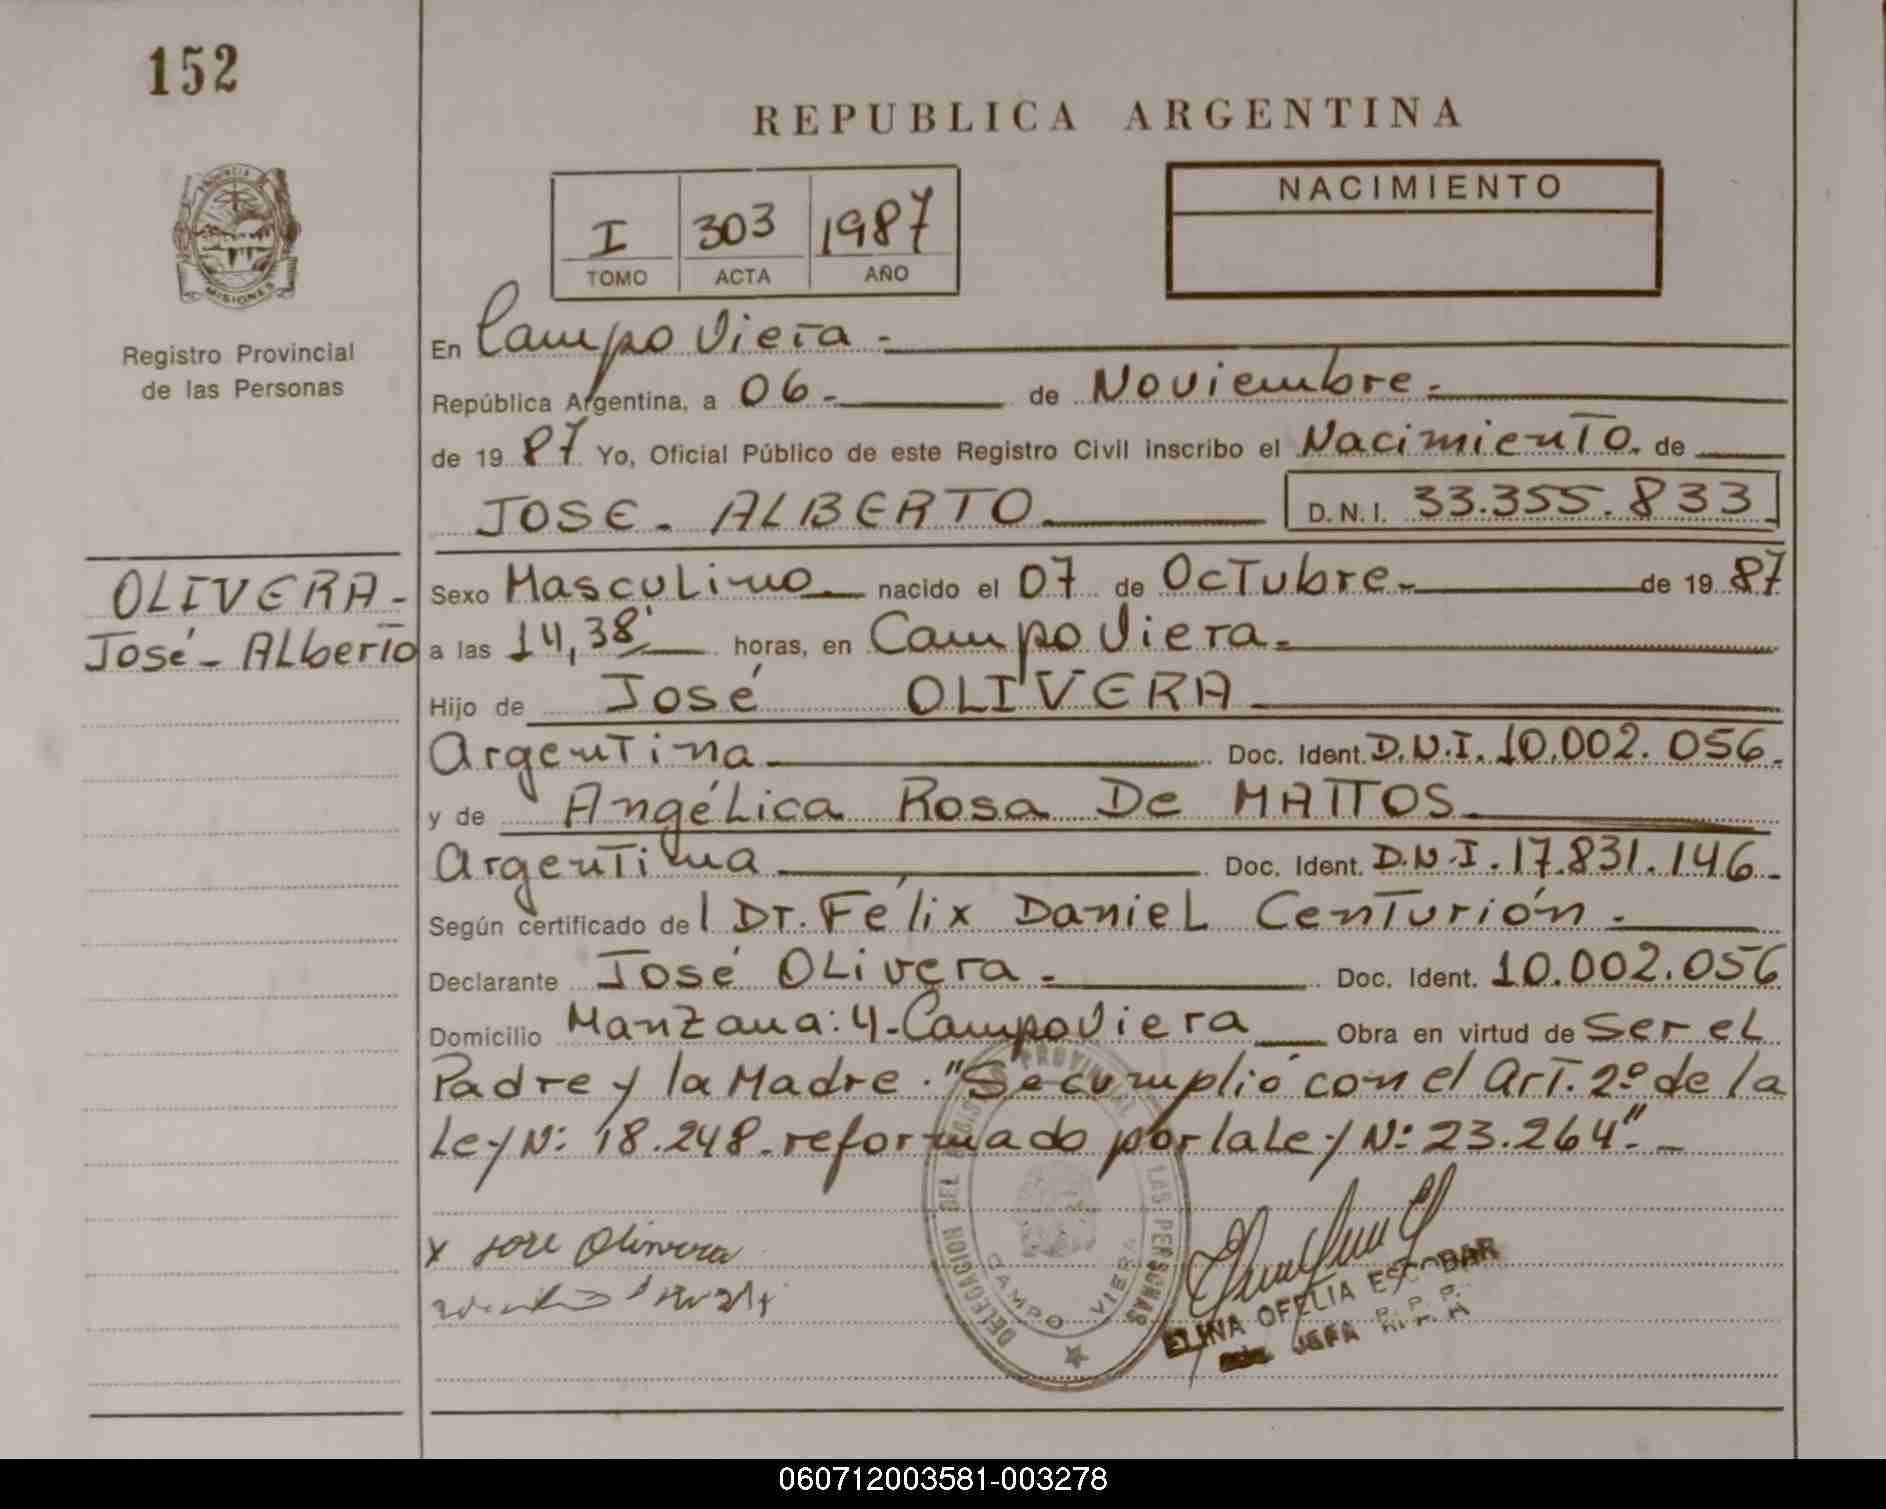 152
REPUBLICA ARGENTINA
PROVINCIA DE
MISIONES
Registro Provincial
de las Personas
I 303 1987
TOMO ACTA AÑO
NACIMIENTO
En Campo Viera.-
República Argentina, a 06.- de Noviembre.-
de 1987 Yo, Oficial Público de este Registro Civil inscribo el Nacimiento. de
JOSE - ALBERTO D.N.I. 33.355.833
OLIVERA -
José - ALberto
Sexo Masculino nacido el 07 de Octubre.- de 1987
a las 14,38' horas, en Campo Viera.-
Hijo de José OLIVERA
Argentina Doc. Ident. D.N.I. 10.002.056.-
y de AngéLica Rosa De MATTOS
Argentina Doc. Ident. D.N.I. 17.831.146.-
Según certificado del Dr. Félix DanieL Centurión.-
Declarante José OLivera.- Doc. Ident. 10.002.056
Domicilio Manzana: 4.-Campo Viera Obra en virtud de Ser eL
Padre y la Madre. "Se cumplió con el Art. 2º de la
Ley Nº: 18.248. reformado por la Ley Nº: 23.264".-
x Jose Olivera
DELEGACION DEL REGISTRO PROVINCIAL DE LAS PERSONAS
CAMPO VIERA
ELINA OFELIA ESCOBAR
JEFA R. P. P.
060712003581-003278